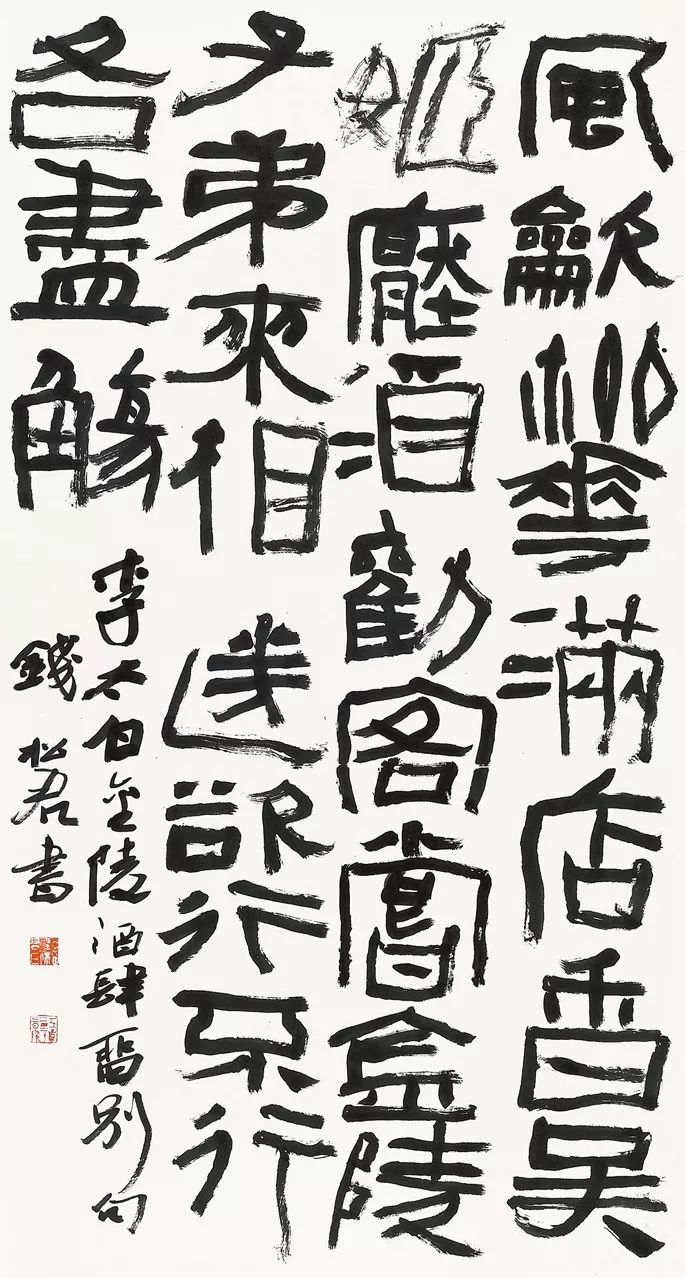 風龡柳華滿店香吳
姬壓酒勸客嘗金陵
子弟來相送欲行不行
各盡觴
李太白金陵酒肆留別句
錢松嵒書